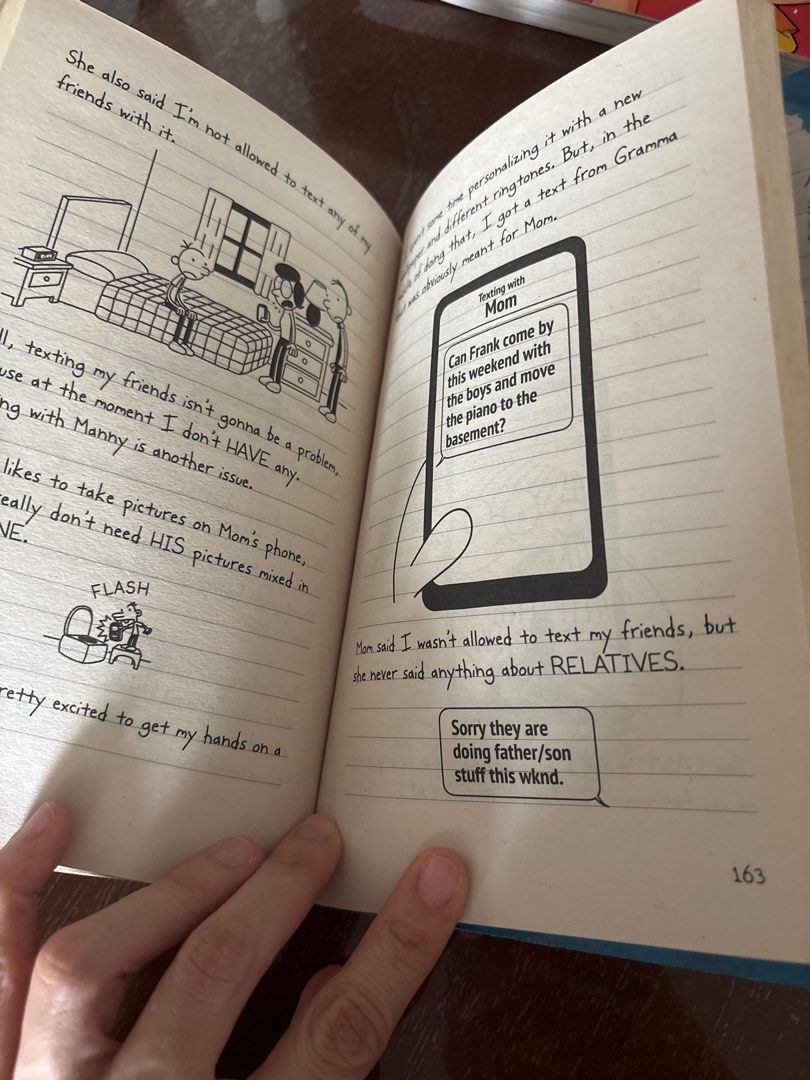 She also said I'm not allowed to text any of my
friends with it.
texting my friends isn't gonna be a problem,
at the moment I don't HAVE any.
with Manny is another issue.
likes to take pictures on Mom's phone,
really don't need HIS pictures mixed in
FLASH
excited to get my hands on a
some time personalizing it with a new
and different ringtones. But, in the
of doing that, I got a text from Gramma
was obviously meant for Mom.
Texting with
Mom
Can Frank come by
this weekend with
the boys and move
the piano to the
basement?
Mom said I wasn't allowed to text my friends, but
she never said anything about RELATIVES.
Sorry they are
doing father/son
stuff this wknd.
163